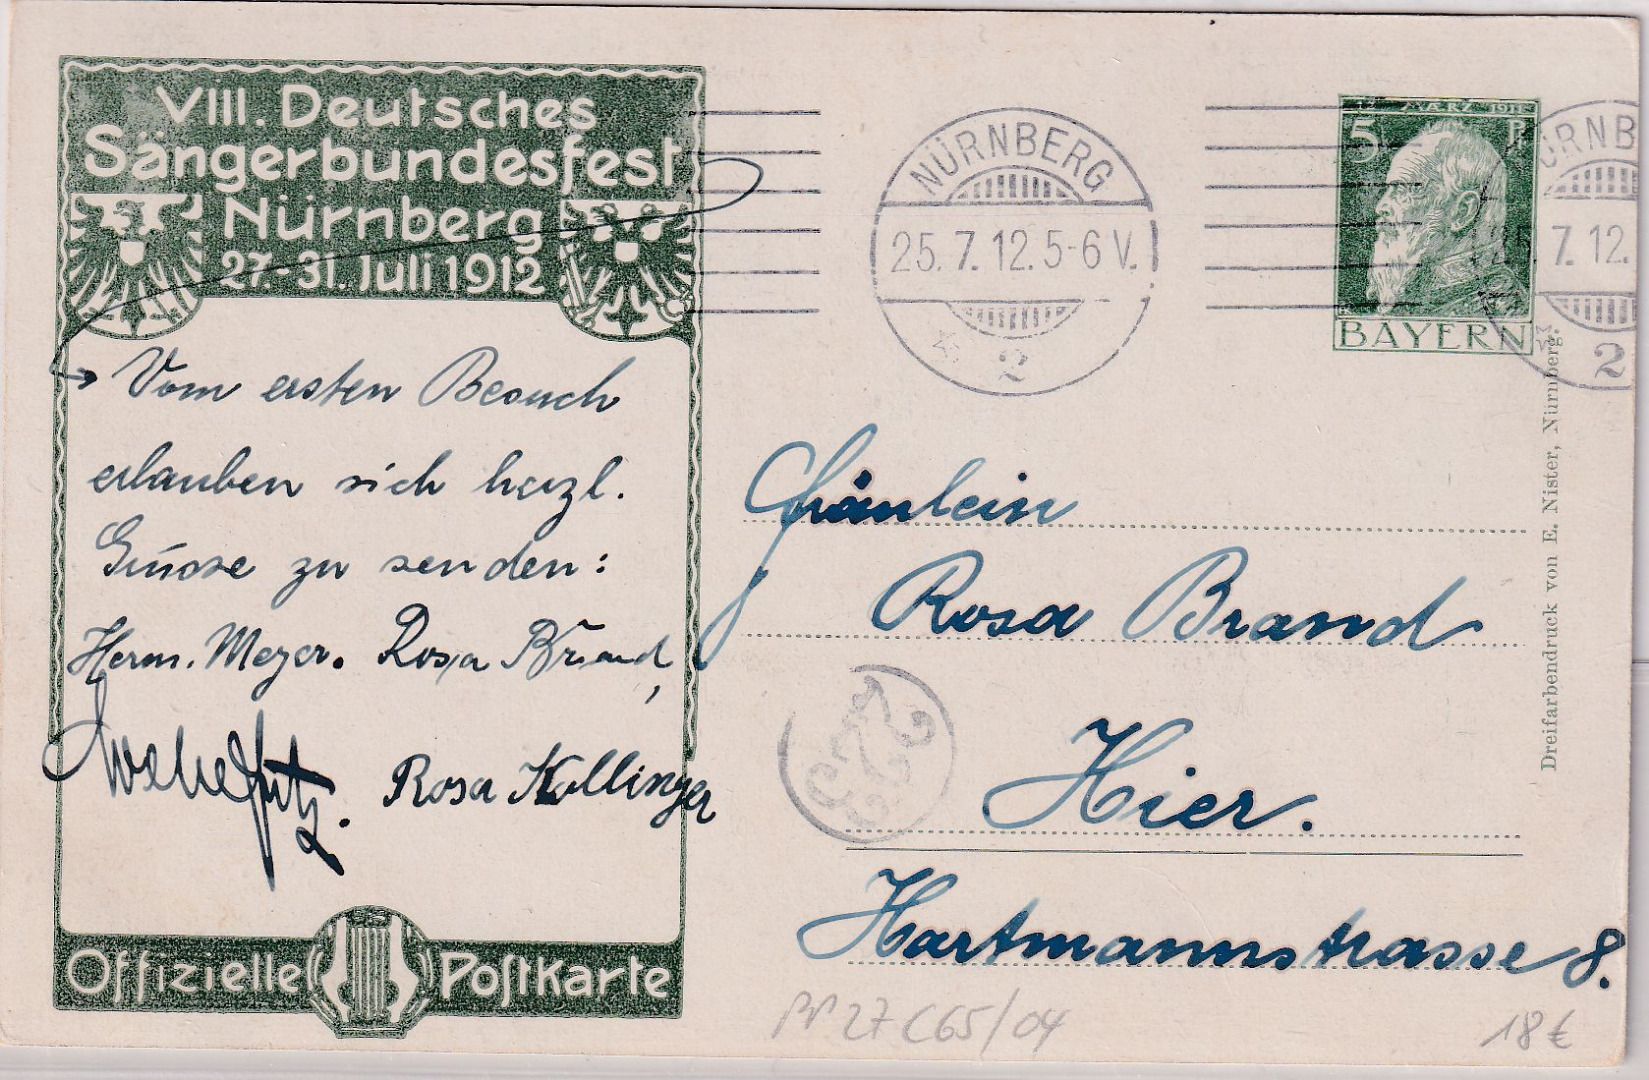 VIII. Deutsches
Sängerbundesfest
Nürnberg
27.-31. Juli 1912
Vom ersten Besuch
erlauben sich herzl.
Grüsse zu senden:
Herm. Meyer. Rosa Brand,
Rosa Kollinger
Offizielle Postkarte
NÜRNBERG
25.7.12.5-6 V.
2
MÄRZ 1911
5 P
BAYERN
ÜRNB
7.12.
2
Fräulein
Rosa Brand
Hier.
Hartmannstrasse 8.
Dreifarbendruck von E. Nister, Nürnberg.
PP 27 C65/04
18€